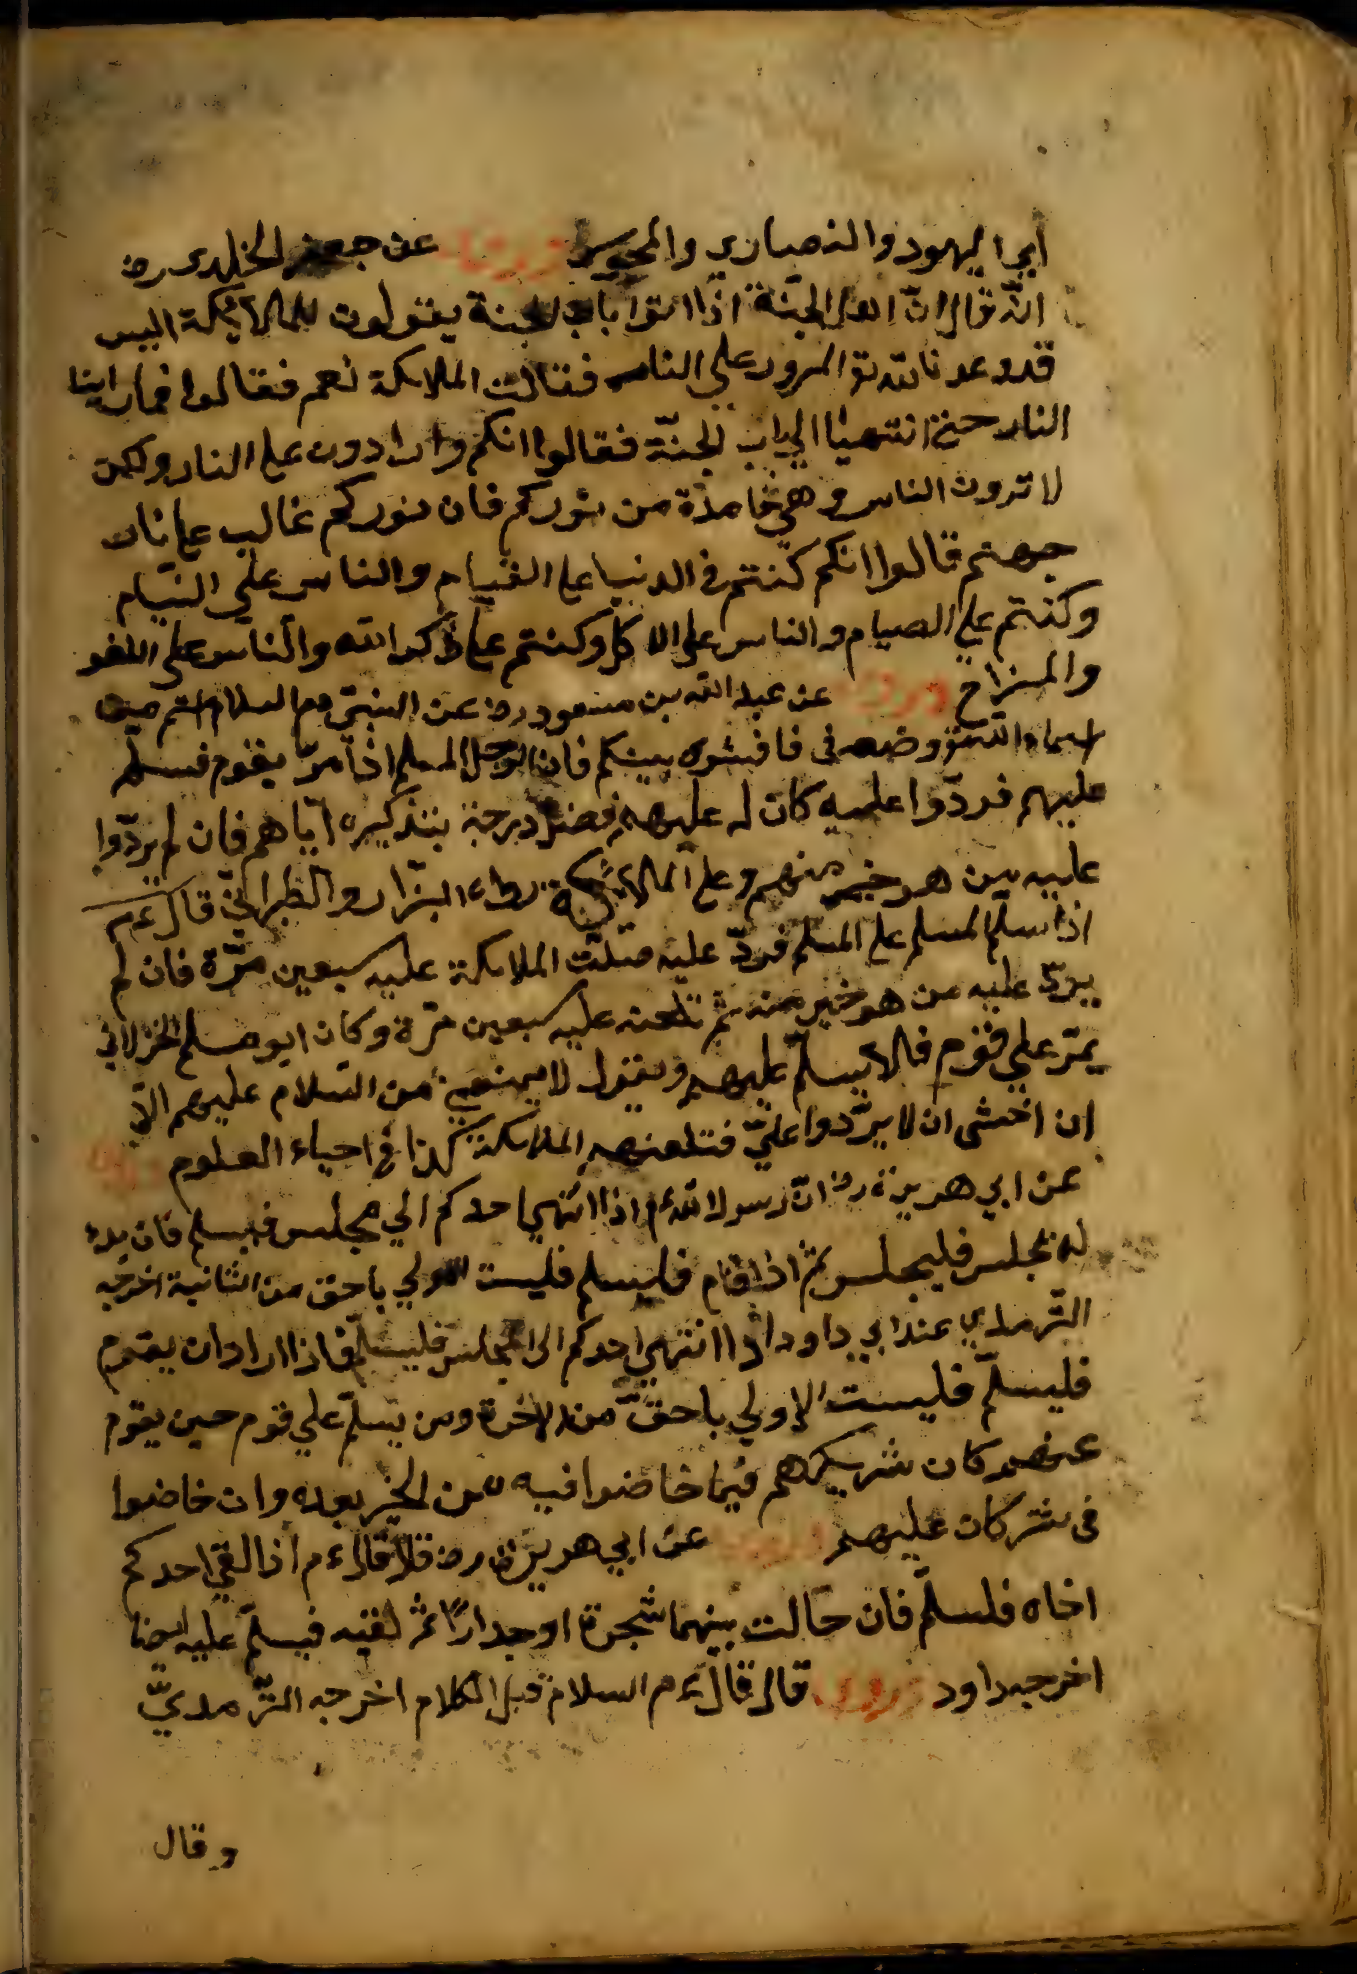 ابي اليهود والنصاري والمجوس عن جعفر الخلدي رض
انه قال ان اهل الجنة اذا اتوا باب الجنة يقولون للملائكة اليس
قد وعدنا الله تع المرور علي النار فقالت الملائكة نعم فقالوا فما راينا
النار حتي انتهينا الي باب الجنة فقالوا انكم واردون علي النار ولكن
لا ترون النار وهي خامدة من نوركم فان نوركم غالب علي نار
جهنم قالوا انكم كنتم في الدنيا علي القيام والناس علي النيام
وكنتم علي الصيام والناس علي الاكل وكنتم علي ذكر الله والناس علي اللغو
والمزاح عن عبد الله بن مسعود رض عن النبي عم السلام اسم من
اسماء الله تع وضعه في فافشوه بينكم فان الرجل المسلم اذا مر بقوم فسلم
عليهم فردوا عليه كان له عليهم فضل درجة بتذكيره اياهم فان لم يردوا
عليه من هو خير منهم وعلي الملائكة رواه البزار والطبراني قال عم
اذا سلم المسلم علي المسلم فرد عليه صلت الملائكة عليه سبعين مرة فان لم
يرد عليه من هو خير منه ثم تلعنه عليه سبعين مرة وكان ابو مسلم الخولاني
يمر علي قوم فلا يسلم عليهم ويقول لا يمنعني من السلام عليهم الا
ان اخشي ان لا يردوا علي فتلعنهم الملائكة كذا في احياء العلوم
عن ابي هريرة رض ان رسول الله عم اذا انتهي احدكم الي مجلس فيسلم فان بدء
له مجلس فليجلس ثم اذا قام فليسلم فليست الاولي باحق من الثانية اخرجه
الترمذي عند ابي داود اذا انتهي احدكم الي المجلس فليسلم فاذا اراد ان يقوم
فليسلم فليست الاولي باحق من الاخرة ومن يسلم علي قوم حين يقوم
عنهم كان شريكهم فيما خاضوا فيه من الخير بعده وان خاضوا
في شر كان عليهم عن ابي هريرة رض قال قال عم اذا لقي احدكم
اخاه فليسلم فان حالت بينهما شجرة او جدارا ثم لقيه فيسلم عليه ايضا
اخرجه داود قال قال عم السلام قبل الكلام اخرجه الترمذي
وقال